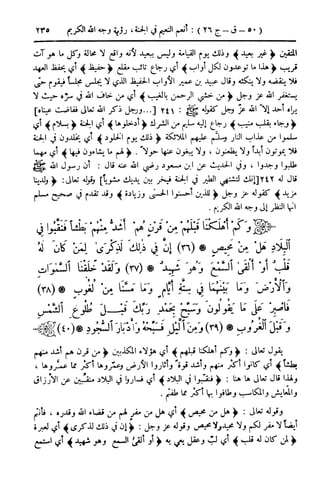 (٥٠ – ق – ج ٢٦) : أنعم النعيم في الجنة، رؤية وجه الله الكريم ٢٣٥
المتقين ﴿غير بعيد﴾ وذلك يوم القيامة وليس ببعيد لأنه واقع لا محالة وكل ما هو آت
قريب ﴿هذا ما توعدون لكل أواب﴾ أي رجاع تائب مقلع ﴿حفيظ﴾ أي يحفظ العهد
فلا ينقضه ولا ينكثه وقال عبيد بن عمير الأواب الحفيظ الذي لا يجلس مجلساً فيقوم حتى
يستغفر الله عز وجل ﴿من خشي الرحمن بالغيب﴾ أي من خاف الله في سره حيث لا
يراه أحد إلا الله عز وجل كقوله ﷺ : ٢٤١ [...ورجل ذكر الله تعالى خالياً ففاضت عيناه]
﴿وجاء بقلب منيب﴾ رجاع إليه سليم من الشرك ﴿أدخلوها﴾ أي الجنة ﴿بسلام﴾ أي
سلموا من عذاب النار وسلم عليهم الملائكة ﴿ذلك يوم الخلود﴾ أي يخلدون في الجنة
فلا يموتون أبداً ولا يظعنون ، ولا يبغون عنها حولاً . ﴿لهم ما يشاءون فيها﴾ أي مهما
طلبوا وجدوا ، وفي الحديث عن ابن مسعود رضي الله عنه قال : أن رسول الله ﷺ
قال له ٢٤٢ [إنك لتشتهي الطير في الجنة فيخر بين يديك مشوياً] وقوله تعالى: ﴿ولدينا
مزيد﴾ كقوله عز وجل ﴿للذين أحسنوا الحسنى وزيادة﴾ وقد تقدم في صحيح مسلم
أنها النظر إلى وجه الله الكريم .
وَكَمْ أَهْلَكْنَا قَبْلَهُمْ مِنْ قَرْنٍ هُمْ أَشَدُّ مِنْهُمْ بَطْشًا فَنَقَّبُوا فِي
الْبِلَادِ هَلْ مِنْ مَحِيصٍ ﴿٣٦﴾ إِنَّ فِي ذَلِكَ لَذِكْرَى لِمَنْ كَانَ لَهُ
قَلْبٌ أَوْ أَلْقَى السَّمْعَ وَهُوَ شَهِيدٌ ﴿٣٧﴾ وَلَقَدْ خَلَقْنَا السَّمَوَاتِ
وَالْأَرْضَ وَمَا بَيْنَهُمَا فِي سِتَّةِ أَيَّامٍ وَمَا مَسَّنَا مِنْ لُغُوبٍ ﴿٣٨﴾
فَاصْبِرْ عَلَى مَا يَقُولُونَ وَسَبِّحْ بِحَمْدِ رَبِّكَ قَبْلَ طُلُوعِ الشَّمْسِ
وَقَبْلَ الْغُرُوبِ ﴿٣٩﴾ وَمِنَ اللَّيْلِ فَسَبِّحْهُ وَأَدْبَارَ السُّجُودِ ﴿٤٠﴾
يقول تعالى : ﴿وكم أهلكنا قبلهم﴾ أي هؤلاء المكذبين ﴿من قرن هم أشد منهم
بطشاً﴾ أي كانوا أكثر منهم وأشد قوة وأثاروا الأرض وعمروها أكثر مما عمروها ،
ولهذا قال تعالى ها هنا : ﴿فنقبوا في البلاد﴾ أي فساروا في البلاد منقبين عن الأرزاق
والمعايش والمكاسب وطافوا بها أكثر مما طفتم .
وقوله تعالى : ﴿هل من محيص﴾ أي هل من مفر لهم من قضاء الله وقدره ، فأنتم
أيضاً لا مفر لكم ولا محيد ولا محيص وقوله عز وجل : ﴿إن في ذلك لذكرى﴾ أي لعبرة
﴿لمن كان له قلب﴾ أي لب وعقل يعي به ﴿أو ألقى السمع وهو شهيد﴾ أي استمع